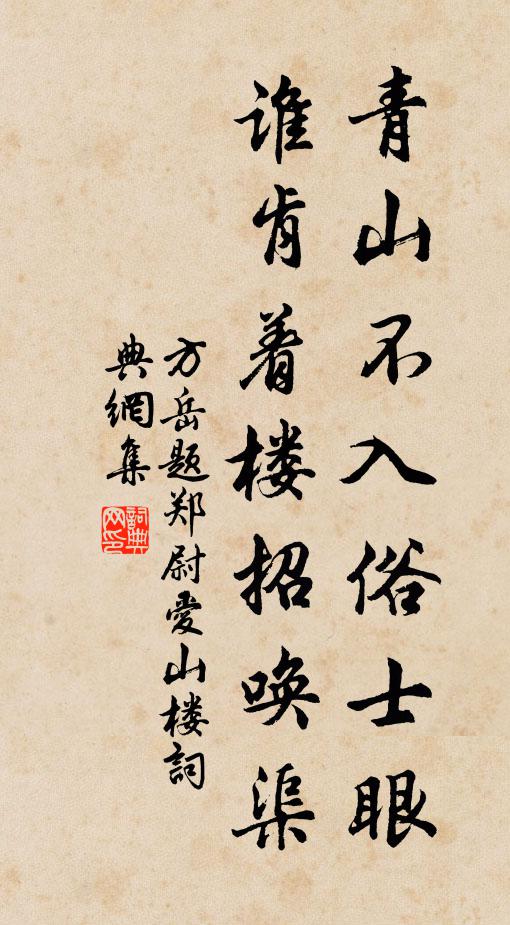 青山不入俗士眼
谁肯着楼招唤渠
方岳题郑尉爱山楼詞
典網集
詞典
网印